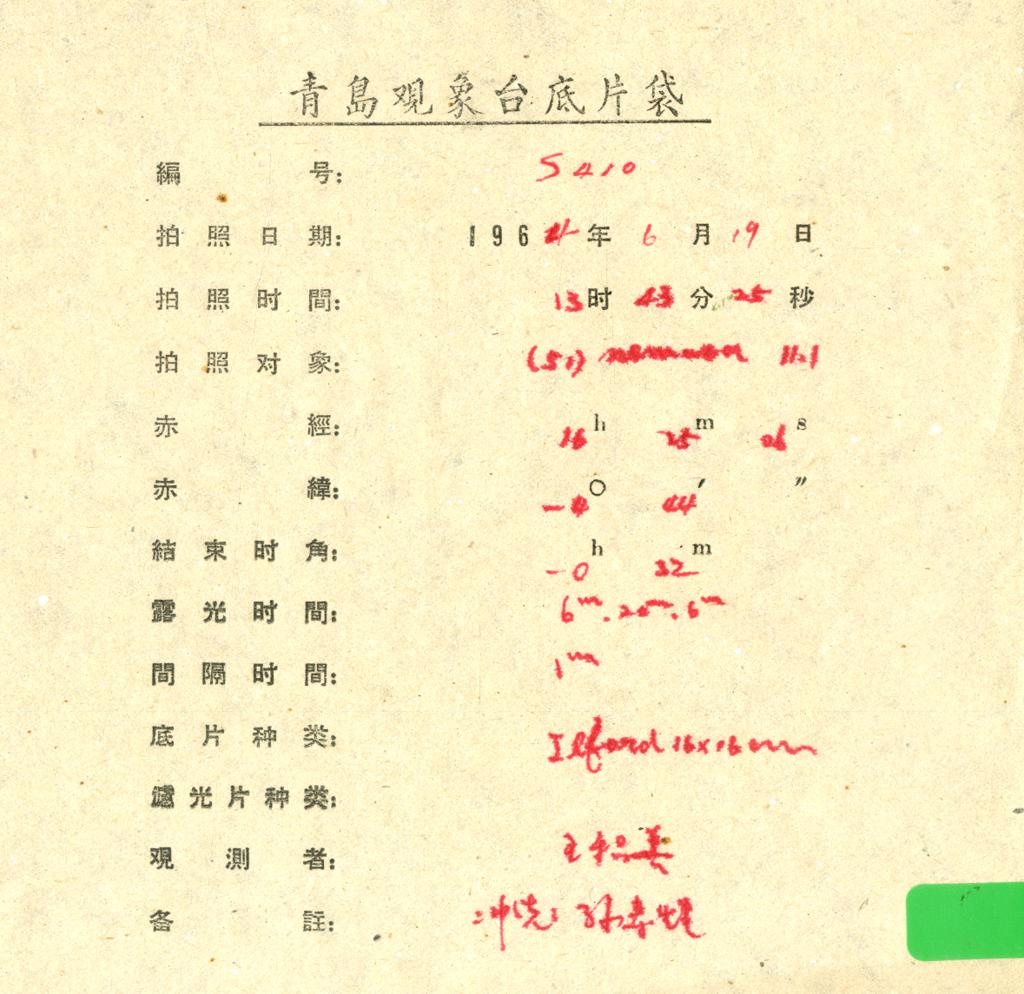 青島观象台底片袋
編号： S410
拍照日期： 1964年6月19日
拍照时間： 13时43分25秒
拍照对象： (51) 11.1
赤經： 16h 25m 06s
赤緯： -4° 44′ ″
結束时角： -0h 32m
露光时間： 6m. 20m. 6m
間隔时間： 1m
底片种类： Ilford 16x16cm
濾光片种类：
观測者： 王
备註： 冲洗: 孙寿